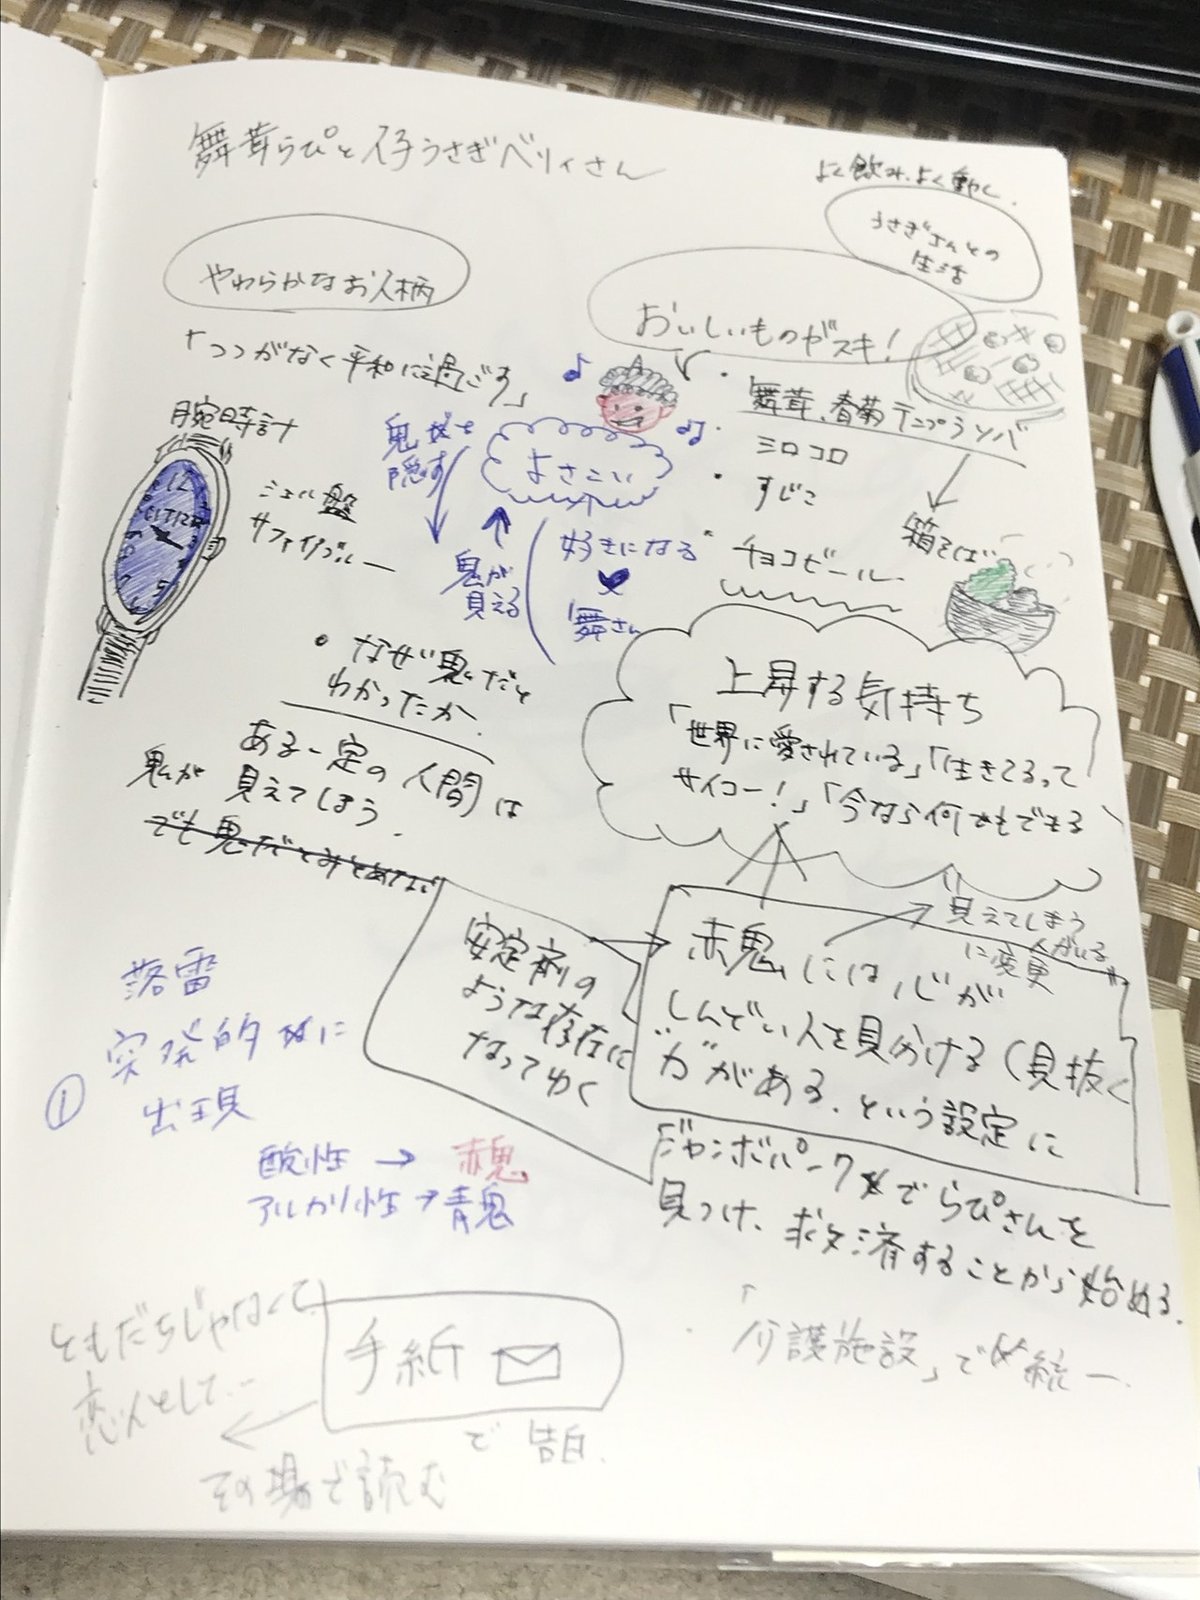 舞茸らぴと仔うさぎベリィさん
よく飲み、よく動く.
うさぎさんとの
生活
やわらかなお人柄
おいしいものがスキ!
「つつがなく平和に過ごす」
・舞茸、春菊テンプラソバ
・ミロコロ
・すじこ
・チョコビール
箱そば
腕時計
シェル盤
サファイアブルー
CITIZEN
鬼
隠す
よさこい
鬼が
見える
好きになる
舞さん
・なぜ鬼だと
わかったか
ある一定の人間は
鬼が見えてしまう.
でも鬼だとみとめない
上昇する気持ち
「世界に愛されている」「生きてるって
サイコー!」「今なら何でもできる
見えてしまう
人がいる
に変更
安定剤の
ような存在に
なってゆく
赤鬼には心が
しんどい人を見分ける(見抜く
力がある.という設定に
ジャンボパークでらぴさんを
見つけ、救済することから始める.
「介護施設」で統一.
落雷
突発的に
①
出現
酸性→赤鬼
アルカリ性→青鬼
ともだちじゃなくて
恋人として…
手紙
で告白.
その場で読む